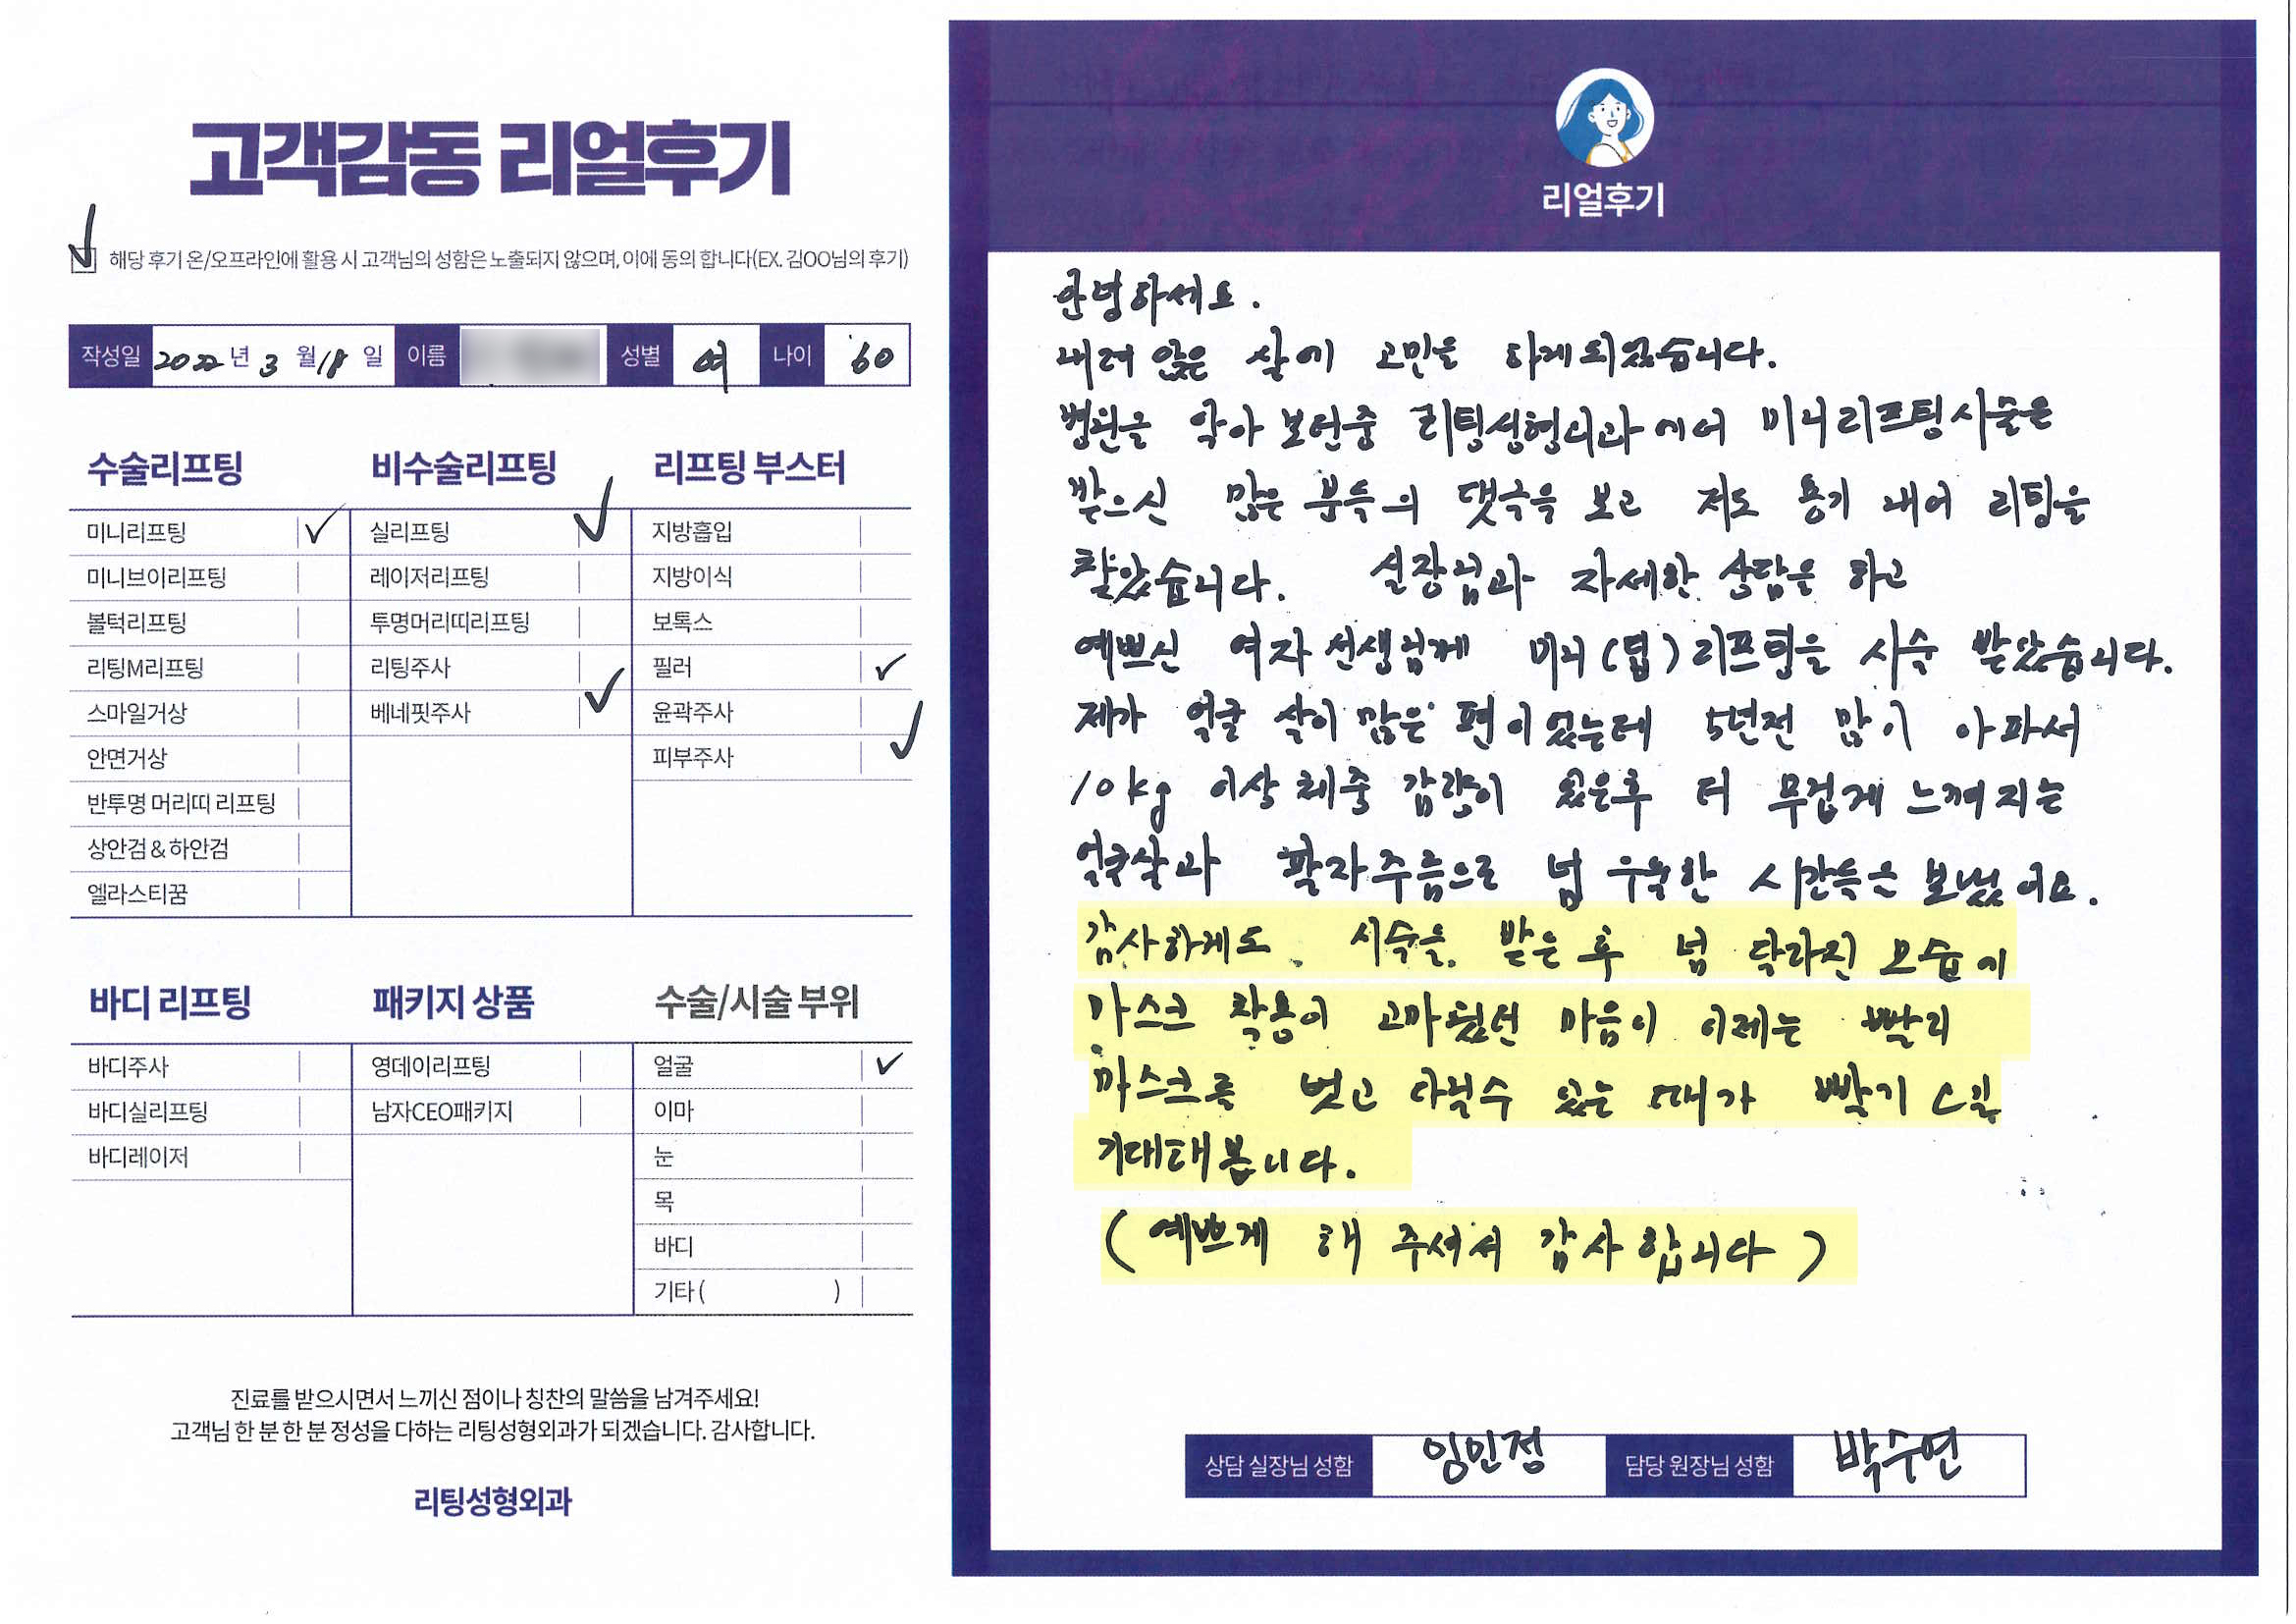 고객감동 리얼후기
해당 후기 온/오프라인에 활용 시 고객님의 성함은 노출되지 않으며, 이에 동의 합니다(EX. 김OO님의 후기)
작성일 2022 년 3 월 18 일 이름 성별 여 나이 '60
수술리프팅
미니리프팅
미니브이리프팅
볼턱리프팅
리팅M리프팅
스마일거상
안면거상
반투명 머리띠 리프팅
상안검 & 하안검
엘라스티꿈
비수술리프팅
실리프팅
레이저리프팅
투명머리띠리프팅
리팅주사
베네핏주사
리프팅 부스터
지방흡입
지방이식
보톡스
필러
윤곽주사
피부주사
바디 리프팅
바디주사
바디실리프팅
바디레이저
패키지 상품
영데이리프팅
남자CEO패키지
수술/시술 부위
얼굴
이마
눈
목
바디
기타 ( )
진료를 받으시면서 느끼신 점이나 칭찬의 말씀을 남겨주세요!
고객님 한 분 한 분 정성을 다하는 리팅성형외과가 되겠습니다. 감사합니다.
리팅성형외과
리얼후기
안녕하세요.
내려 앉은 살에 고민을 하게되었습니다.
병원을 알아 보던중 리팅성형외과에서 미니리프팅시술을
받으신 많은 분들의 댓글을 보고 저도 용기 내어 리팅을
찾았습니다. 실장님과 자세한 상담을 하고
예쁘신 여자 선생님께 미니(딥)리프팅을 시술 받았습니다.
제가 얼굴 살이 많은 편이었는데 5년전 많이 아파서
10kg 이상 체중 감량이 있은후 더 무겁게 느껴지는
얼굴살과 팔자주름으로 넘 우울한 시간들을 보냈어요.
감사하게도 시술을 받은 후 넘 달라진 모습에
마스크 착용이 고마웠던 마음이 이제는 빨리
마스크를 벗고 다닐수 있는 때가 빨리 오길
기대해봅니다.
(예쁘게 해 주셔서 감사합니다)
상담 실장님 성함 임민정 담당 원장님 성함 박수연